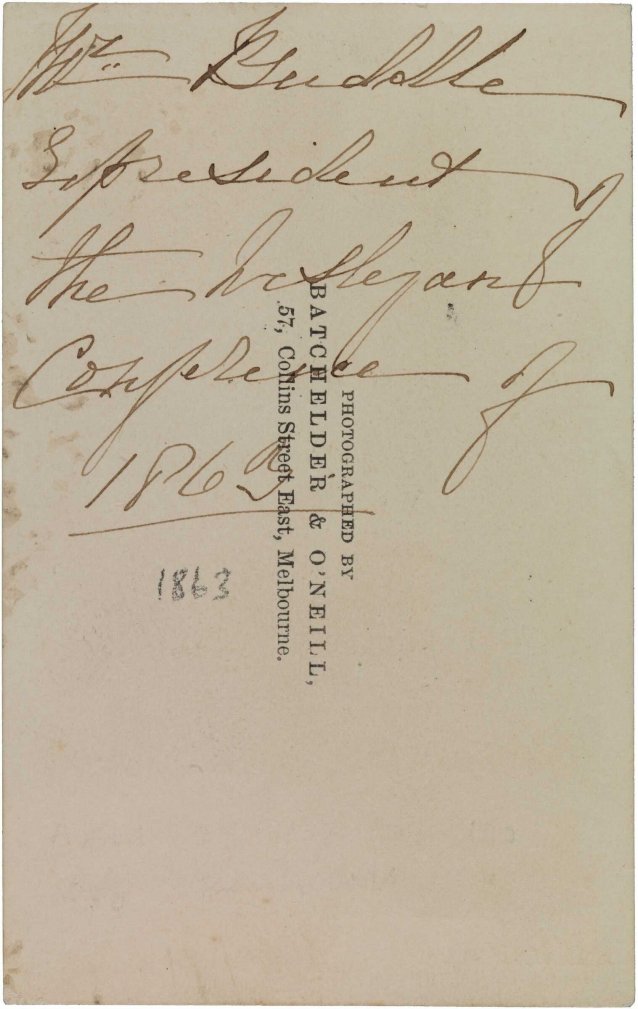 Mr Buddle
president of
the Wesleyan
Conference of
1863
1863
PHOTOGRAPHED BY
BATCHELDER & O'NEILL,
57, Collins Street East, Melbourne.